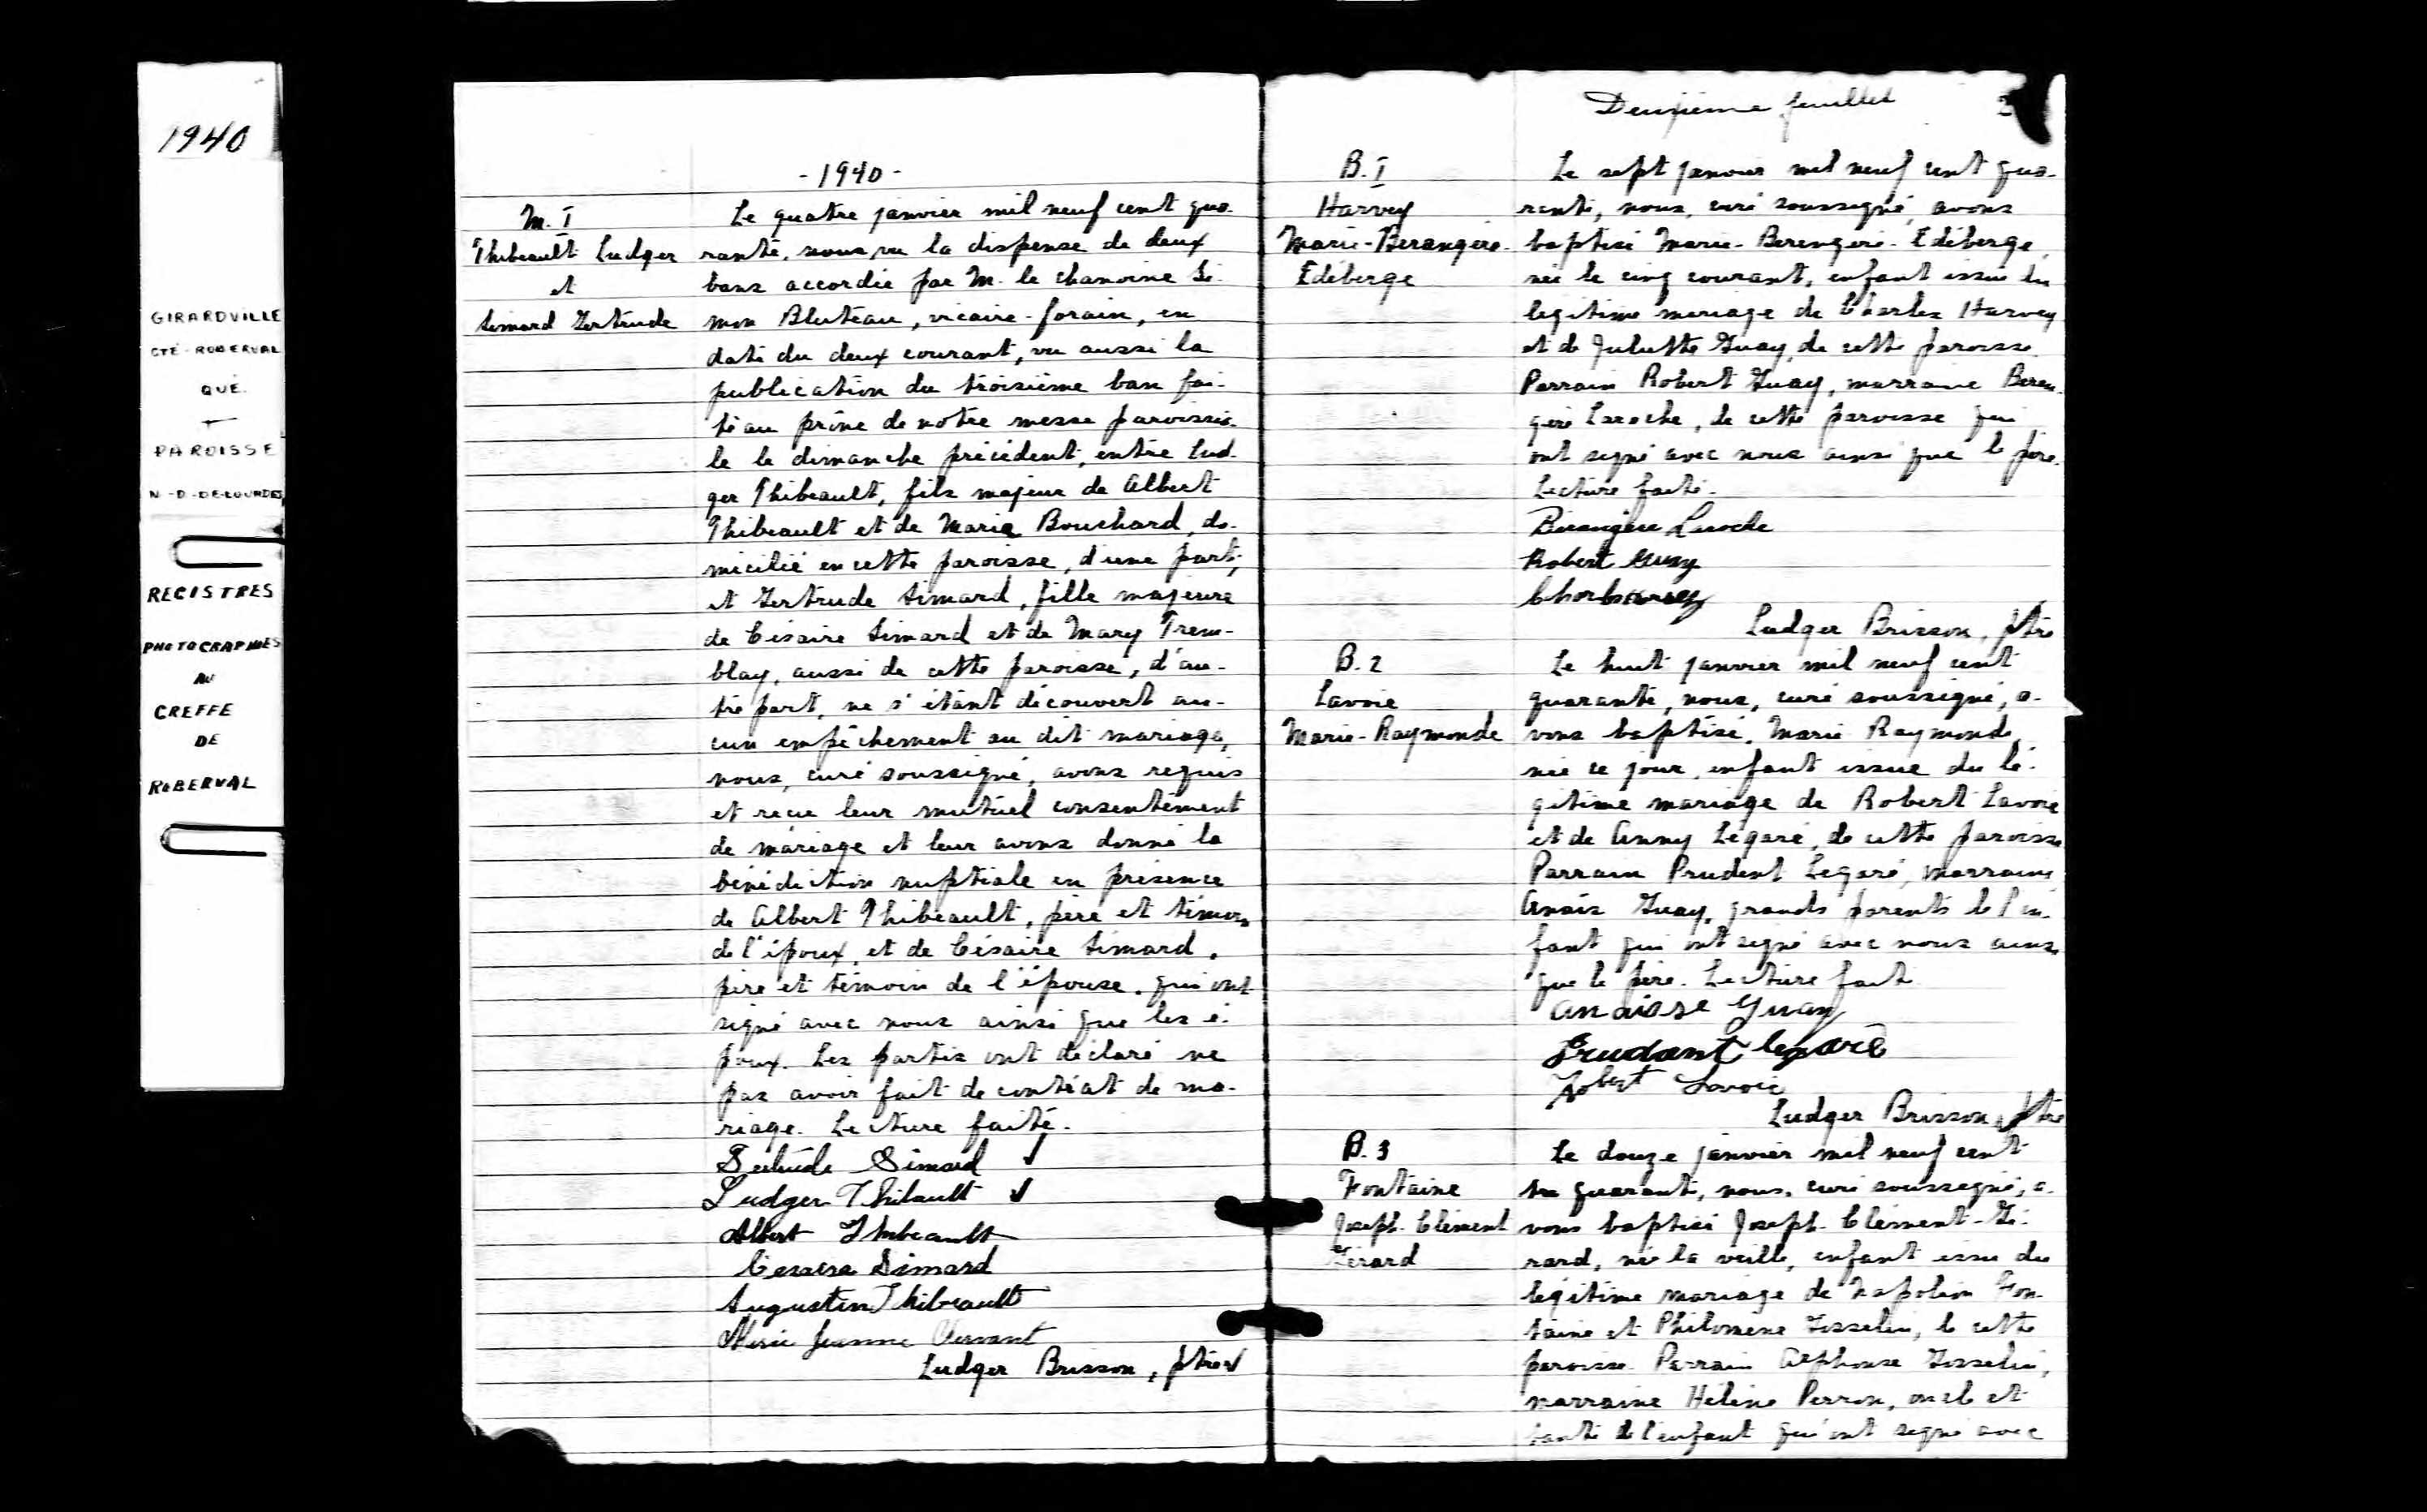 1940
GIRARDVILLE
CTÉ-ROBERVAL
QUÉ.
PAROISSE
N.-D.-DE-LOURDES
REGISTRES
PHOTOGRAPHIÉS
AU
GREFFE
DE
ROBERVAL
- 1940 -
M. I
Thibeault Ludger
et
Simard Gertrude
Le quatre janvier mil neuf cent qua-
rante, nous, vu la dispense de deux
bans accordée par M. le chanoine Si-
mon Bluteau, vicaire-forain, en
date du deux courant, vu aussi la
publication du troisième ban fai-
te au prône de notre messe paroissia-
le le dimanche précédent, entre Lud-
ger Thibeault, fils majeur de Albert
Thibeault et de Maria Bouchard, do-
micilié en cette paroisse, d'une part,
et Gertrude Simard, fille majeure
de Césaire Simard et de Mary Trem-
blay, aussi de cette paroisse, d'au-
tre part, ne s'étant découvert au-
cun empêchement au dit mariage,
nous, curé soussigné, avons requis
et reçu leur mutuel consentement
de mariage et leur avons donné la
bénédiction nuptiale en présence
de Albert Thibeault, père et témoin
de l'époux, et de Césaire Simard,
père et témoin de l'épouse, qui ont
signé avec nous ainsi que les é-
poux. Les parties ont déclaré ne
pas avoir fait de contrat de ma-
riage. Lecture faite.
Gertrude Simard
Ludger Thibault
Albert Thibeault
Cesaire Simard
Augustin Thibeault
Marie Jeanne
Ludger Brisson, ptre
Deuxième feuillet
2
B. I
Harvey
Marie-Berangère-
Edeberge
Le sept janvier mil neuf cent qua-
rante, nous, curé soussigné, avons
baptisé Marie-Berengère-Edéberge,
née le cinq courant, enfant issue du
légitime mariage de Charles Harvey
et de Juliette Guay, de cette paroisse.
Parrain Robert Guay, marraine Beren-
gère Laroche, de cette paroisse qui
ont signé avec nous ainsi que le père.
Lecture faite.
Bérangère Laroche
Robert Guay
Ludger Brisson, ptre
B. 2
Lavoie
Marie-Raymonde
Le huit janvier mil neuf cent
quarante, nous, curé soussigné, a-
vons baptisé, Marie Raymonde,
née ce jour, enfant issue du lé-
gitime mariage de Robert Lavoie
et de Anny Légaré, de cette paroisse
Parrain Prudent Légaré, marraine
Anaïs Guay, grands parents de l'en-
fant qui ont signé avec nous ainsi
que le père. Lecture faite
Anaisse Guay
Prudant legaré
Robert Lavoie
Ludger Brisson, ptre
B. 3
Fontaine
Joseph-Clément
Gérard
Le douze janvier mil neuf cent
quarante, nous, curé soussigné, a-
vons baptisé Joseph-Clément-Gé-
rard, né la veille, enfant issu du
légitime mariage de Napoléon Fon-
taine et Philomène Gosselin, de cette
paroisse. Parrain Alphonse Gosselin,
marraine Hélène Perron, oncle et
tante de l'enfant qui ont signé avec